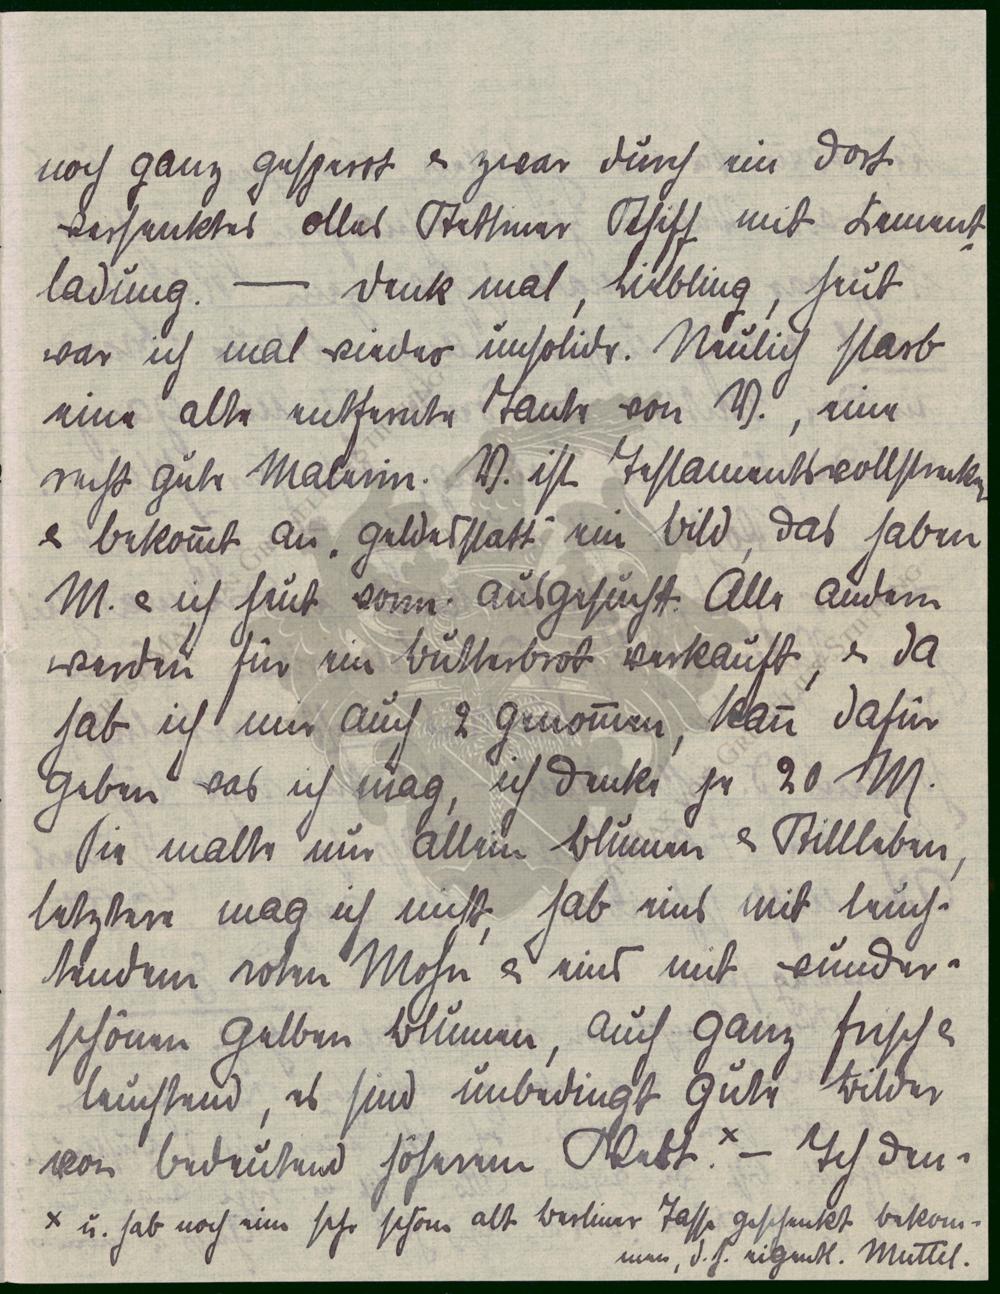 noch ganz gesperrt & zwar durch ein dort
versenktes olles Stettiner Schiff mit Zement-
ladung. — Denk mal, Liebling, heut
war ich mal wieder unsolide. Neulich starb
eine alte entfernte Tante von V., eine
recht gute Malerin. V. ist Testamentsvollstrecker
& bekom̅t an „geldesstatt“ ein Bild, das haben
M. & ich heut vorm. ausgesucht. Alle andern
werden für ein Butterbrot verkauft, & da
hab ich mir auch 2 genom̅en, kan̅ dafür
geben was ich mag, ich denke je 20 M.
Sie malte nur allein Blumen & Stillleben,
letztere mag ich nicht, hab eins mit leuch-
tendem roten Mohn & eins mit wunder-
schönen gelben Blumen, auch ganz frisch &
leuchtend, es sind unbedingt gute Bilder
von bedeutend höherem Wert.ˣ — Ich den-
x u. hab noch eine sehr schöne alte Berliner Tasse geschenkt bekom-
men, d. h. eigentl. Muttel.